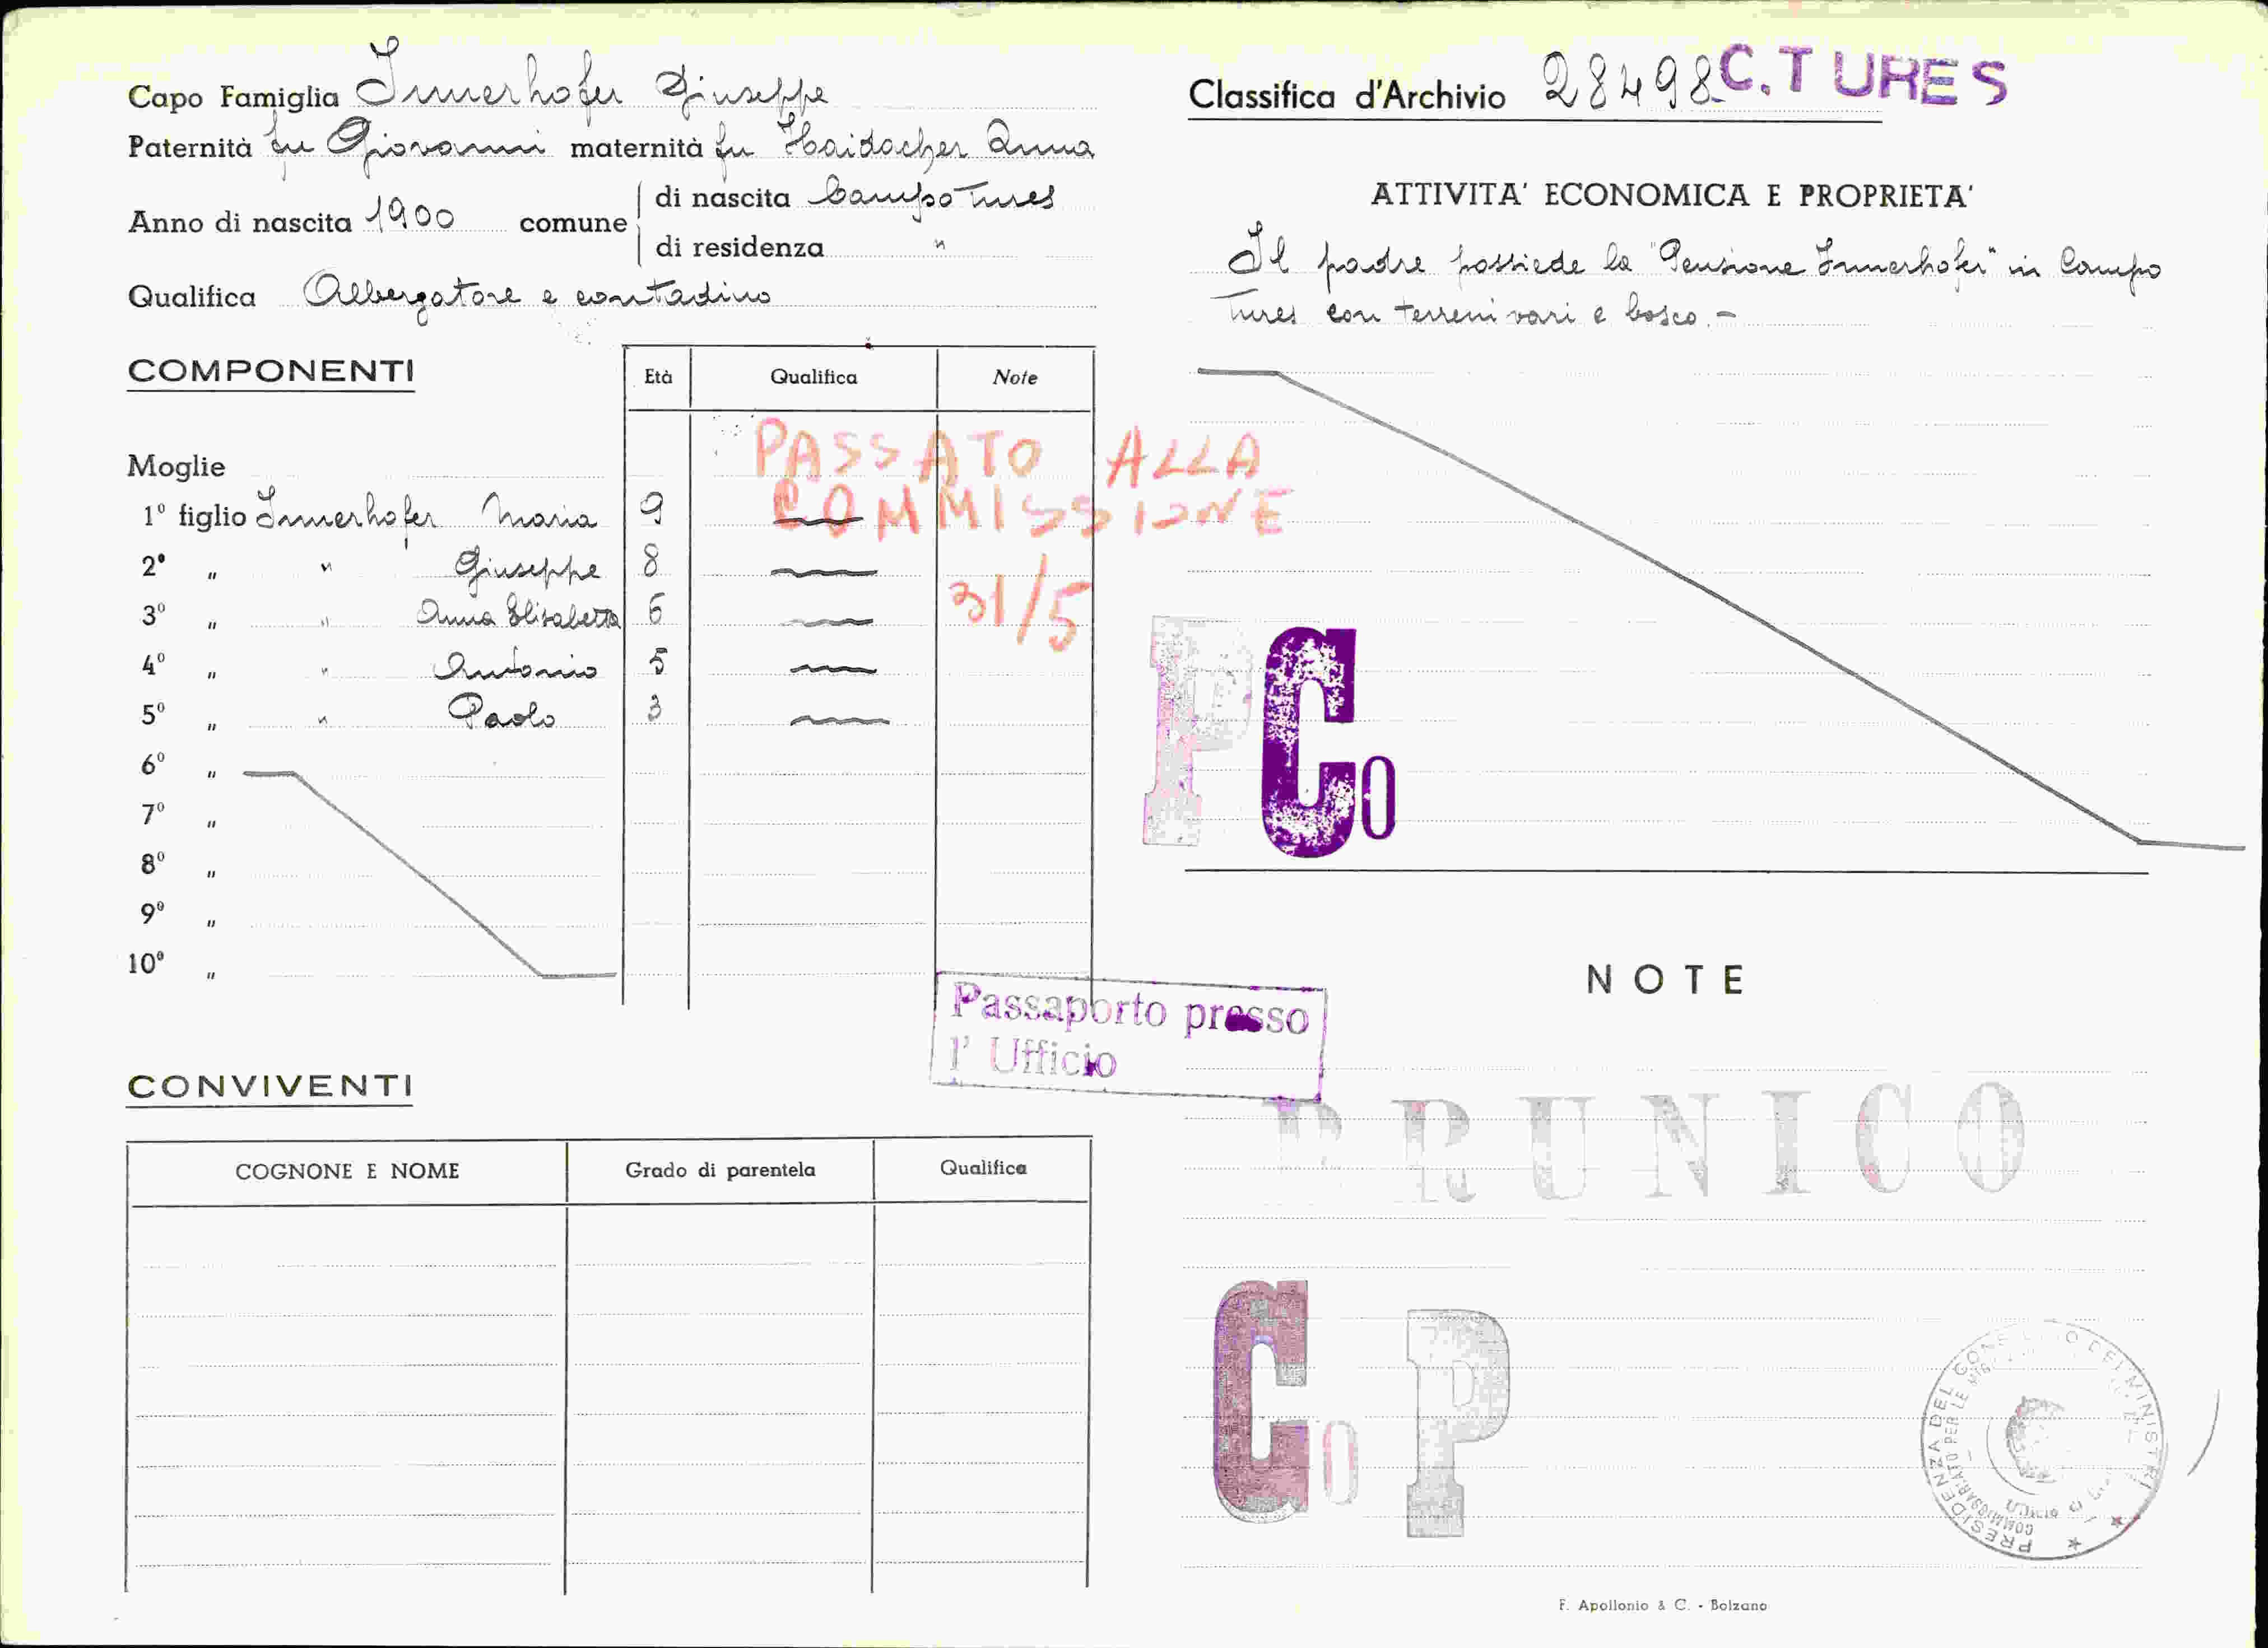 Capo Famiglia Innerhofer Giuseppe
Paternità fu Giovanni maternità fu Haidacher Anna
Anno di nascita 1900 comune di nascita Campo Tures
di residenza "
Qualifica Albergatore e contadino
COMPONENTI
Età Qualifica Note
PASSATO ALLA
COMMISSIONE
31/5
Moglie
1º figlio Innerhofer Maria 9
2º " " Giuseppe 8
3º " " Anna Elisabetta 6
4º " " Antonio 5
5º " " Paolo 3
6º "
7º "
8º "
9º "
10º "
Passaporto presso
l' Ufficio
CONVIVENTI
COGNONE E NOME Grado di parentela Qualifica
Classifica d'Archivio 28498 C.TURES
ATTIVITA' ECONOMICA E PROPRIETA'
Il padre possiede la "Pensione Innerhofer" in Campo
Tures con terreni vari e bosco.-
P Co
NOTE
BRUNICO
Co P
PRESIDENZA DEL CONSIGLIO DEI MINISTRI
COMMISSARIATO PER LE
F. Apollonio & C. - Bolzano